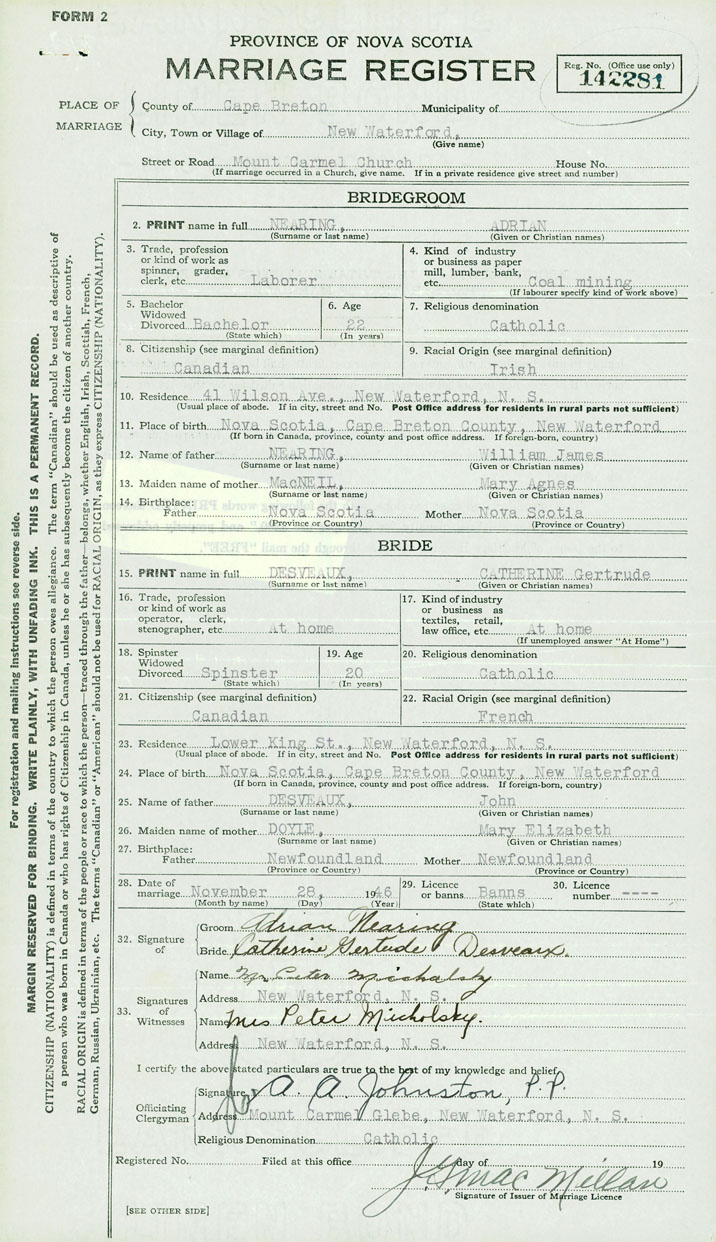 FORM 2
PROVINCE OF NOVA SCOTIA
MARRIAGE REGISTER
Reg. No. (Office use only)
142281
PLACE OF MARRIAGE
County of Cape Breton Municipality of
City, Town or Village of New Waterford,
(Give name)
Street or Road Mount Carmel Church House No.
(If marriage occurred in a Church, give name. If in a private residence give street and number)
BRIDEGROOM
2. PRINT name in full NEARING, ADRIAN
(Surname or last name) (Given or Christian names)
3. Trade, profession or kind of work as spinner, grader, clerk, etc. Laborer
4. Kind of industry or business as paper mill, lumber, bank, etc. Coal mining
(If labourer specify kind of work above)
5. Bachelor Widowed Divorced Bachelor
(State which)
6. Age 22
(In years)
7. Religious denomination
Catholic
8. Citizenship (see marginal definition)
Canadian
9. Racial Origin (see marginal definition)
Irish
10. Residence 41 Wilson Ave., New Waterford, N. S.
(Usual place of abode. If in city, street and No. Post Office address for residents in rural parts not sufficient)
11. Place of birth Nova Scotia, Cape Breton County, New Waterford
(If born in Canada, province, county and post office address. If foreign-born, country)
12. Name of father NEARING, William James
(Surname or last name) (Given or Christian names)
13. Maiden name of mother MacNEIL, Mary Agnes
(Surname or last name) (Given or Christian names)
14. Birthplace: Father Nova Scotia Mother Nova Scotia
(Province or Country) (Province or Country)
BRIDE
15. PRINT name in full DESVEAUX, CATHERINE Gertrude
(Surname or last name) (Given or Christian names)
16. Trade, profession or kind of work as operator, clerk, stenographer, etc. At home
17. Kind of industry or business as textiles, retail, law office, etc. At home
(If unemployed answer "At Home")
18. Spinster Widowed Divorced Spinster
(State which)
19. Age 20
(In years)
20. Religious denomination
Catholic
21. Citizenship (see marginal definition)
Canadian
22. Racial Origin (see marginal definition)
French
23. Residence Lower King St., New Waterford, N. S.
(Usual place of abode. If in city, street and No. Post Office address for residents in rural parts not sufficient)
24. Place of birth Nova Scotia, Cape Breton County, New Waterford
(If born in Canada, province, county and post office address. If foreign-born, country)
25. Name of father DESVEAUX, John
(Surname or last name) (Given or Christian names)
26. Maiden name of mother DOYLE, Mary Elizabeth
(Surname or last name) (Given or Christian names)
27. Birthplace: Father Newfoundland Mother Newfoundland
(Province or Country) (Province or Country)
28. Date of marriage November 28, 1946
(Month by name) (Day) (Year)
29. Licence or banns Banns
(State which)
30. Licence number ----
32. Signature of
Groom Adrian Nearing
Bride Catherine Gertrude Desveaux.
33. Signatures of Witnesses
Name Mr Peter Micholsky
Address New Waterford, N. S.
Name Mrs Peter Micholsky.
Address New Waterford, N. S.
I certify the above stated particulars are true to the best of my knowledge and belief.
Officiating Clergyman
Signature A. A. Johnston, P.P.
Address Mount Carmel Glebe, New Waterford, N. S.
Religious Denomination Catholic
Registered No. Filed at this office day of 19
Signature of Issuer of Marriage Licence
[SEE OTHER SIDE]
For registration and mailing instructions see reverse side.
MARGIN RESERVED FOR BINDING. WRITE PLAINLY, WITH UNFADING INK. THIS IS A PERMANENT RECORD.
CITIZENSHIP (NATIONALITY) is defined in terms of the country to which the person owes allegiance. The term "Canadian" should be used as descriptive of
a person who was born in Canada or who has rights of Citizenship in Canada, unless he or she has subsequently become the citizen of another country.
RACIAL ORIGIN is defined in terms of the people or race to which the person—traced through the father—belongs, whether English, Irish, Scottish, French,
German, Russian, Ukrainian, etc. The terms "Canadian" or "American" should not be used for RACIAL ORIGIN, as they express CITIZENSHIP (NATIONALITY).